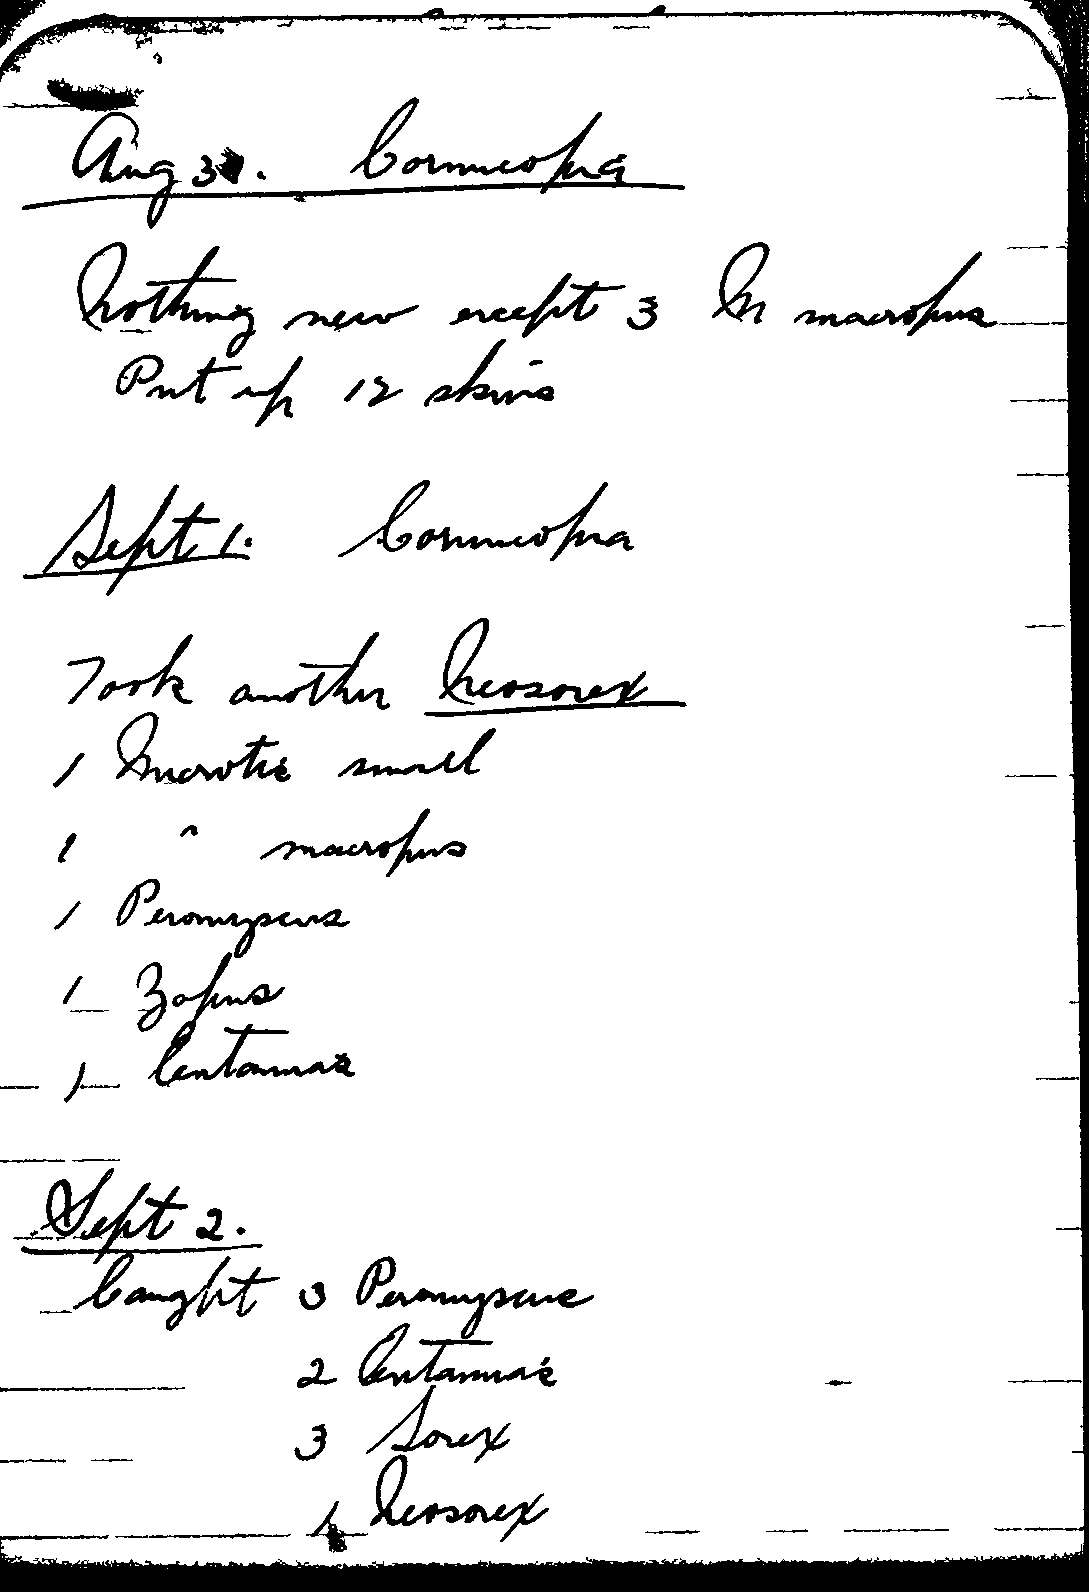 Aug 31. Cornucopia
Nothing new except 3 M macropus
Put up 12 skins
Sept 1. Cornucopia
Took another Neosorex
1 Microtis small
1 " macropus
1 Peromyscus
1 Zapus
1 Eutamias
Sept 2.
Caught 3 Peromyscus
2 Eutamias
3 Sorex
1 Neosorex